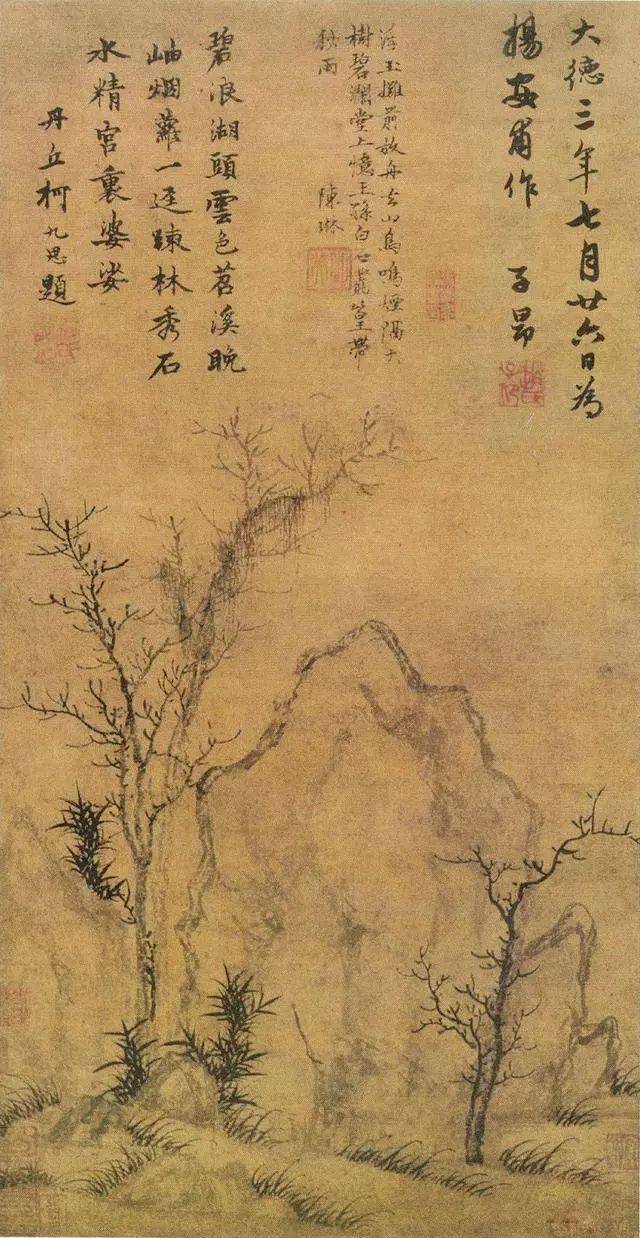 大德三年七月廿六日為
揚安甫作 子昂
浮玉前放舟去山鳥鳴煙隔大
樹碧瀾堂上憶王孫白石叢篁帶
秋雨 陳琳
碧浪湖頭雲色苕溪晚
岫烟蘿一逕踈林秀石
水精宮裏婆娑
丹丘柯九思題